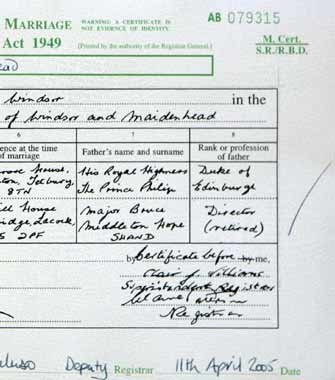 MARRIAGE
WARNING: A CERTIFICATE IS
NOT EVIDENCE OF IDENTITY.
AB 079315
Act 1949
[Printed by the authority of the Registrar General.]
M. Cert.
S.R./R.B.D.
ead
Windsor in the
of Windsor and Maidenhead
6 7 8
ence at the time
of marriage
Father's name and surname
Rank or profession
of father
House,
Tetbury
8TN
His Royal Highness
The Prince Philip
Duke of
Edinburgh
ill House
idge, Lacock,
2PF
Major Bruce
Middleton Hope
SHAND
Director
(retired)
by Certificate before by me,
Clair J. Williams
Superintendent Registrar
Registrar
Deputy Registrar 11th April 2005 Date